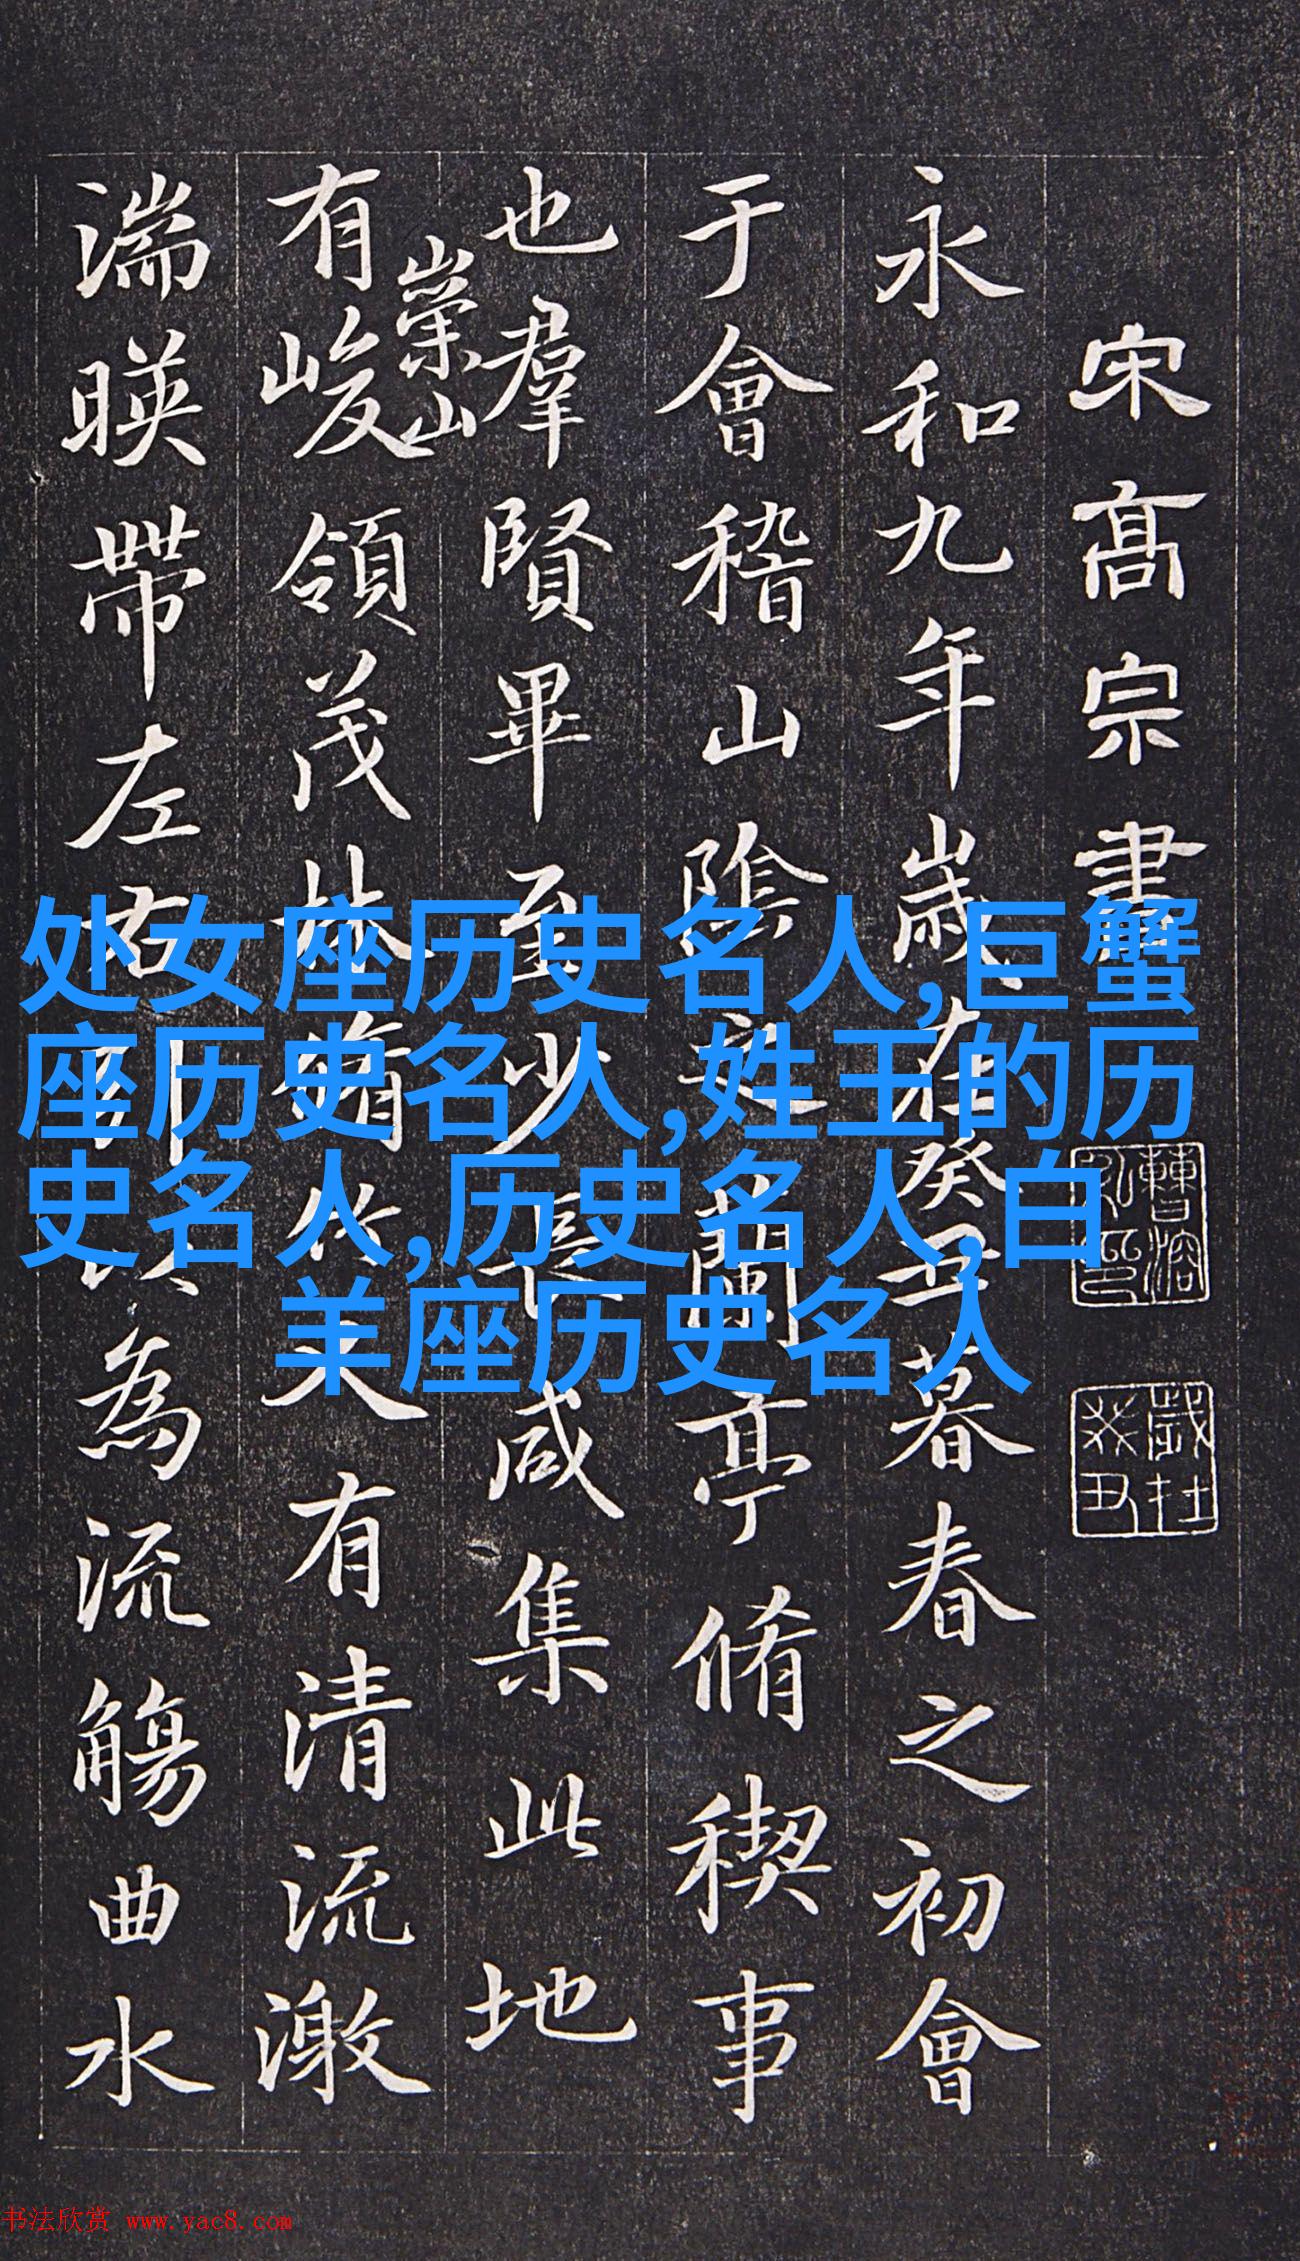 宋髙宗書
永和九年歲在癸丑暮春之初會
于會稽山陰之蘭亭脩稧事
也羣賢畢至少長咸集此地
有崇山峻領茂林脩竹又有清流激
湍暎帶左右以為流觴曲水
歲在癸丑
处女座历史名人,巨蟹
座历史名人,姓王的历
史名人,历史名人,白
羊座历史名人
书法欣赏 www.yac8.com